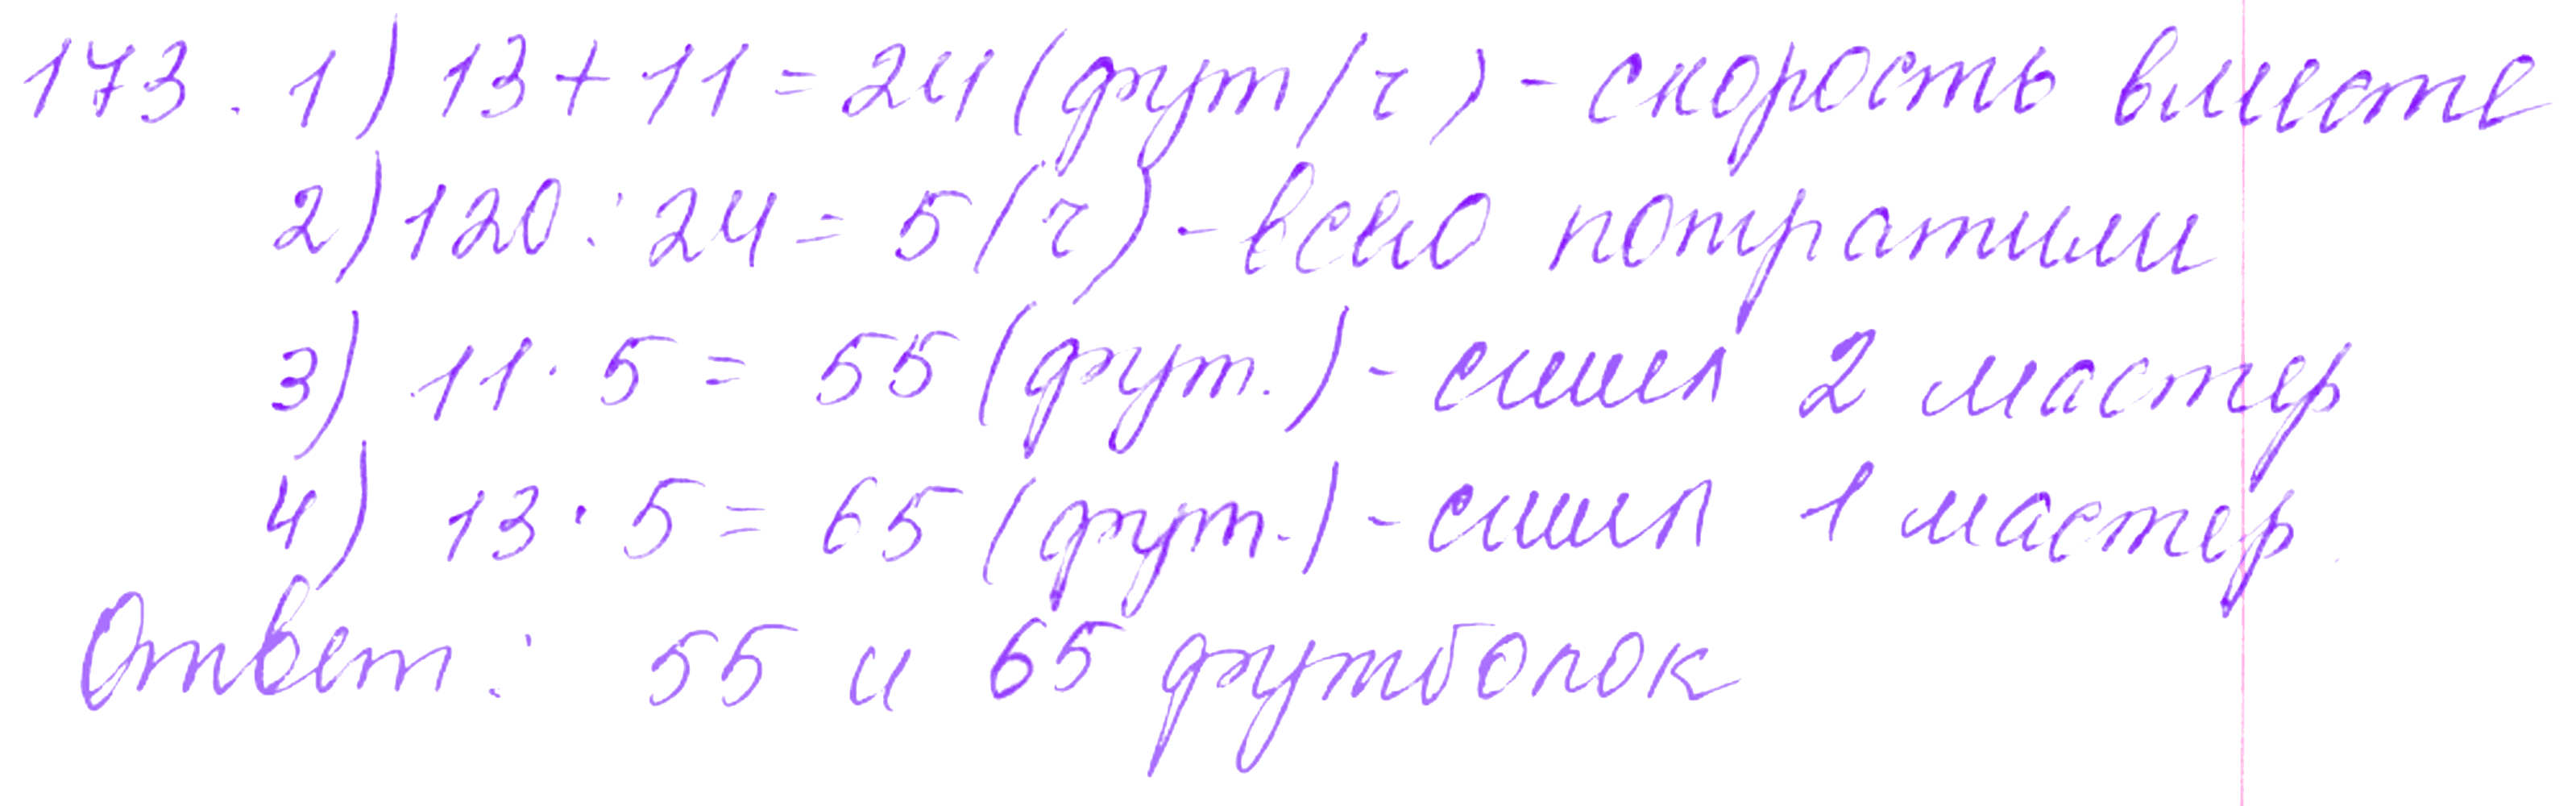 173. 1) 13 + 11 = 24 (фут/ч) - скорость вместе
2) 120 : 24 = 5 (ч) - всего потратили
3) 11 · 5 = 55 (фут.) - сшил 2 мастер
4) 13 · 5 = 65 (фут.) - сшил 1 мастер.
Ответ: 55 и 65 футболок